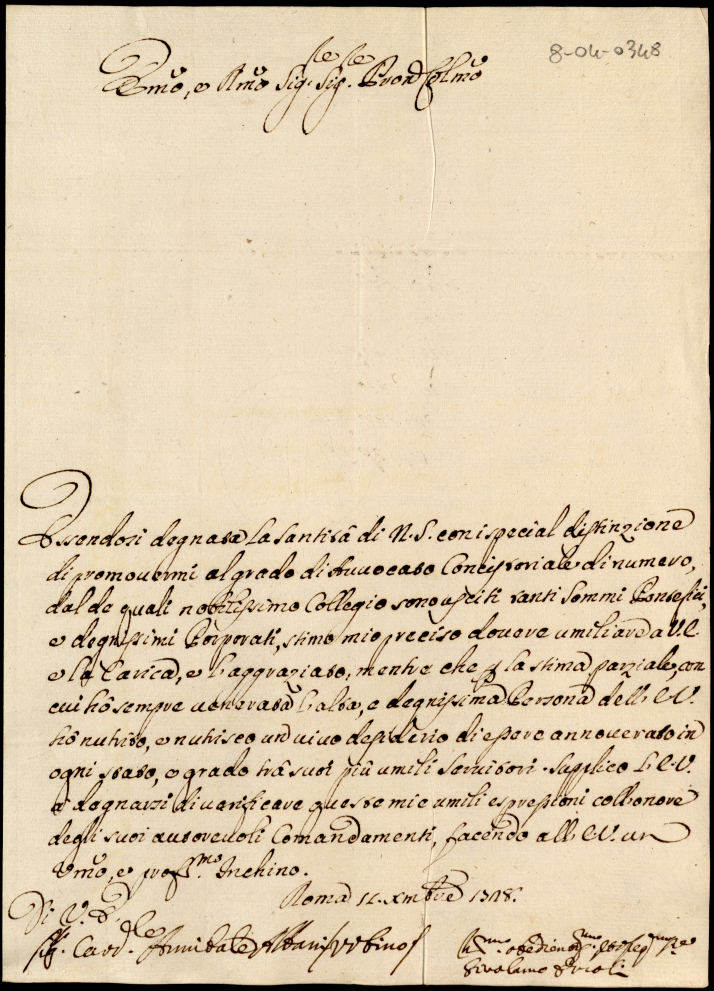 8-04-0348
Emo, e Rmo Sig.re Sig.re Pron Colmo
Essendosi degnata La Santità di N. S. con ispecial distinzione
di promovermi al grado di Avvocato Concistoriale di numero,
dal de quali nobilissimo Collegio sono usciti tanti Sommi Pontefici,
e degnissimi Porporati, stimo mio preciso dovere umiliare a V. E.
e la Carica, e l'aggraziato, mentre che p la stima parziale, con
cui hò sempre venerata l'alta, e degnissima Persona dell' E. V.
hò nutrito, e nutisco un vivo desiderio di essere annoverato in
ogni stato, e grado trà suoi più umili servitori. Supplico l' E. V.
a degnarsi di verificare queste mie umili espressioni coll'onore
degli suoi autorevoli Comandamenti, facendo all' E. V. un
Umo, e profss.mo Inchino.
Roma 14. Xmbre
Di V. E.
Sig. Card.le Annibale Albani Urbino